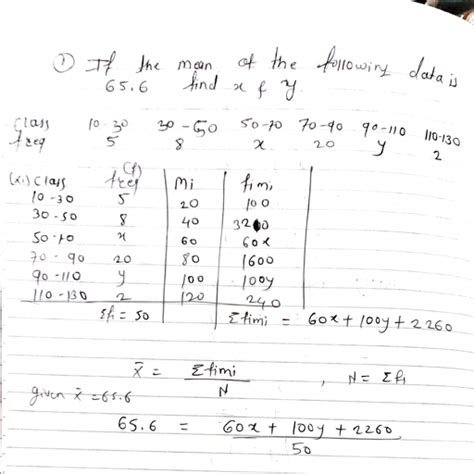 ① If the mean of the following data is
65.6 find x & y.
Class 10-30 30-50 50-70 70-90 90-110 110-130
freq 5 8 x 20 y 2
(xi) Class freq (f) mi fimi
10-30 5 20 100
30-50 8 40 320
50-70 x 60 60x
70-90 20 80 1600
90-110 y 100 100y
110-130 2 120 240
Σfi = 50 Σfimi = 60x + 100y + 2260
x̄ = Σfimi / N , N = Σfi
given x̄ = 65.6
65.6 = 60x + 100y + 2260 / 50